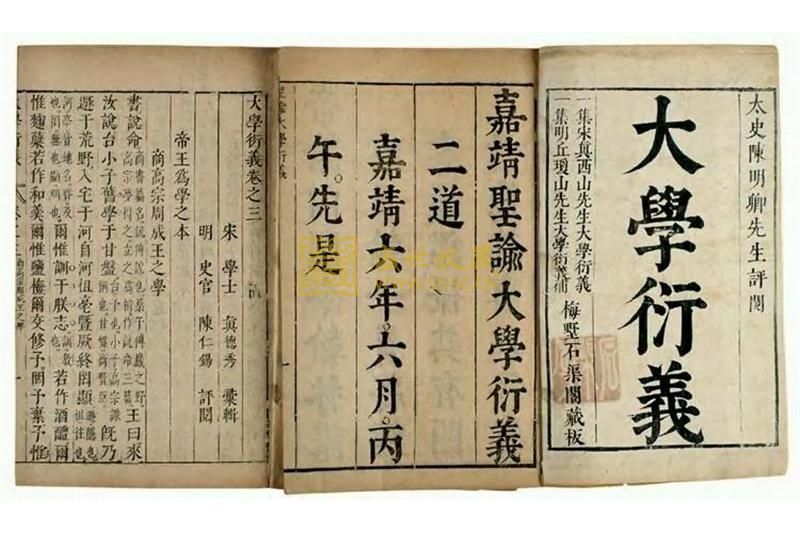 太史陳明卿先生評閱
大學衍義
一集宋真西山先生大學衍義
一集明丘瓊山先生大學衍義補
梅墅石渠閣藏板
嘉靖聖諭大學衍義
二道
嘉靖六年。六月。丙
午。先是
聖諭大學衍義
大學衍義卷之三
宋 學士 真德秀 彙輯
明 史官 陳仁錫 評閱
帝王為學之本
商高宗周成王之學
書說命
王曰來
汝說台小子舊學于甘盤
既乃
遯于荒野入宅于河自河徂亳曁厥終罔顯
爾惟訓于朕志
若作酒醴爾
惟麴糵若作和羹爾惟鹽梅爾交修予罔予棄予惟